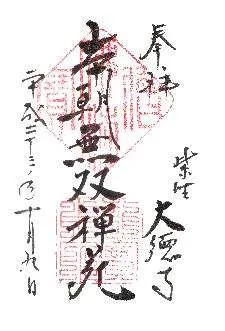 奉拝
紫野 大德寺
本朝無双禅苑
平成二十三年十月九日